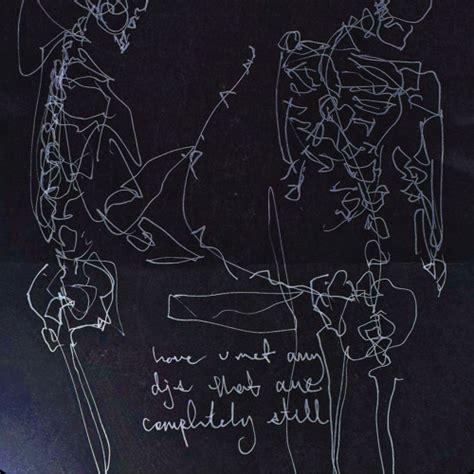 have u met any
djs that are
completely still